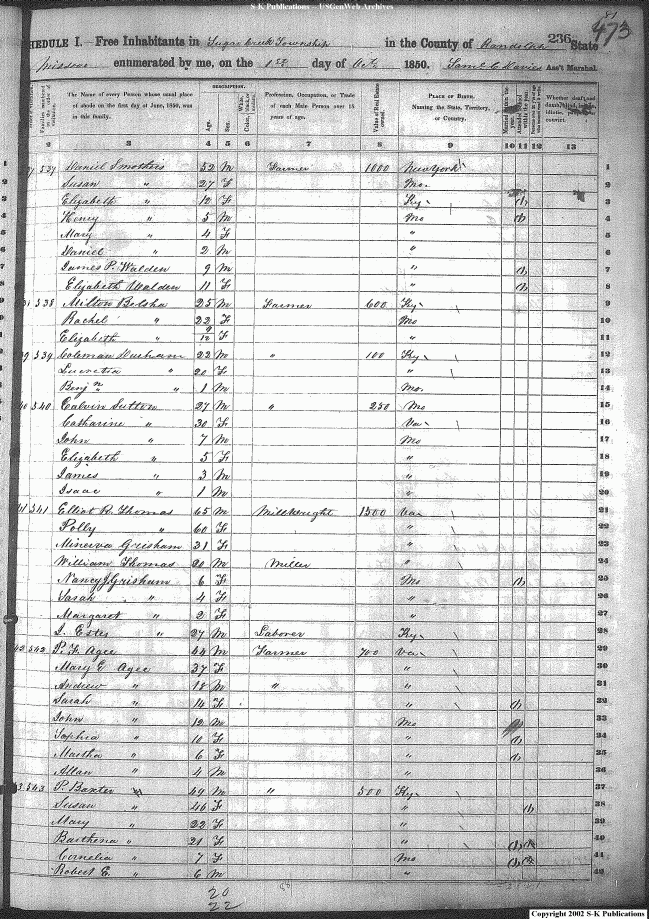 S-K Publications – USGenWeb Archives
236 473
SCHEDULE I. Free Inhabitants in Sugar Creek Township in the County of Randolph State
Missouri enumerated by me, on the 1st day of Octr 1850. Saml C Davies Ass't Marshal.
DESCRIPTION.
The Name of every Person whose usual place of abode on the first day of June, 1850, was in this family.
Age. Sex. Color,
Profession, Occupation, or Trade of each Male Person over 15 years of age.
Value of Real Estate owned.
PLACE OF BIRTH.
Naming the State, Territory, or Country.
Whether deaf and dumb, blind, insane, idiotic, pauper, or convict.
2 3 4 5 6 7 8 9 10 11 12 13
537 Daniel Smothers 52 M Farmer 1000 New York 1
Susan " 27 F Mo. 2
Elizabeth " 12 F Ky 1 3
Henry " 5 M Mo 1 4
Mary " 4 F " 5
Daniel " 2 M " 6
James P. Walden 9 M " 1 7
Elizabeth Walden 11 F " 1 8
538 Milton Belsha 25 M Farmer 600 Ky 9
Rachel " 22 F Mo 10
Elizabeth " 9/12 F " 11
539 Coleman 22 M " 100 Ky 12
Lucretia " 20 F " 13
Benjn " 1 M Mo. 14
540 Calvin Sutton 27 M " 250 Mo 15
Catharine " 30 F Va 16
John " 7 M Mo 17
Elizabeth " 5 F " 18
James " 3 M " 19
Isaac " 1 M " 20
541 Elliot R. Thomas 65 M Millwright 1500 Va 21
Polly " 60 F " 22
Minerva Grisham 31 F " 23
William Thomas 20 M Miller " 24
Nancy J Grisham 6 F Mo 1 25
Sarah " 4 F " 26
Margaret " 2 F " 27
I. Estes " 27 M Laborer Ky 28
542 P. F. Agee 44 M Farmer 700 Va 29
Mary E Agee 37 F " 30
Andrew " 18 M " " 31
Sarah " 14 F " 1 32
John " 12 M Mo 33
Sophia " 10 F " 1 34
Martha " 6 F " 1 35
Allan " 4 M " 36
543 P. Baxter 49 M " 500 Ky 37
Susan " 46 F " 1 38
Mary " 22 F " 39
Barthena " 21 F " 1 40
Cornelia " 7 F Mo 1 41
Robert E. " 6 M " 42
20
22
Copyright 2002 S-K Publications